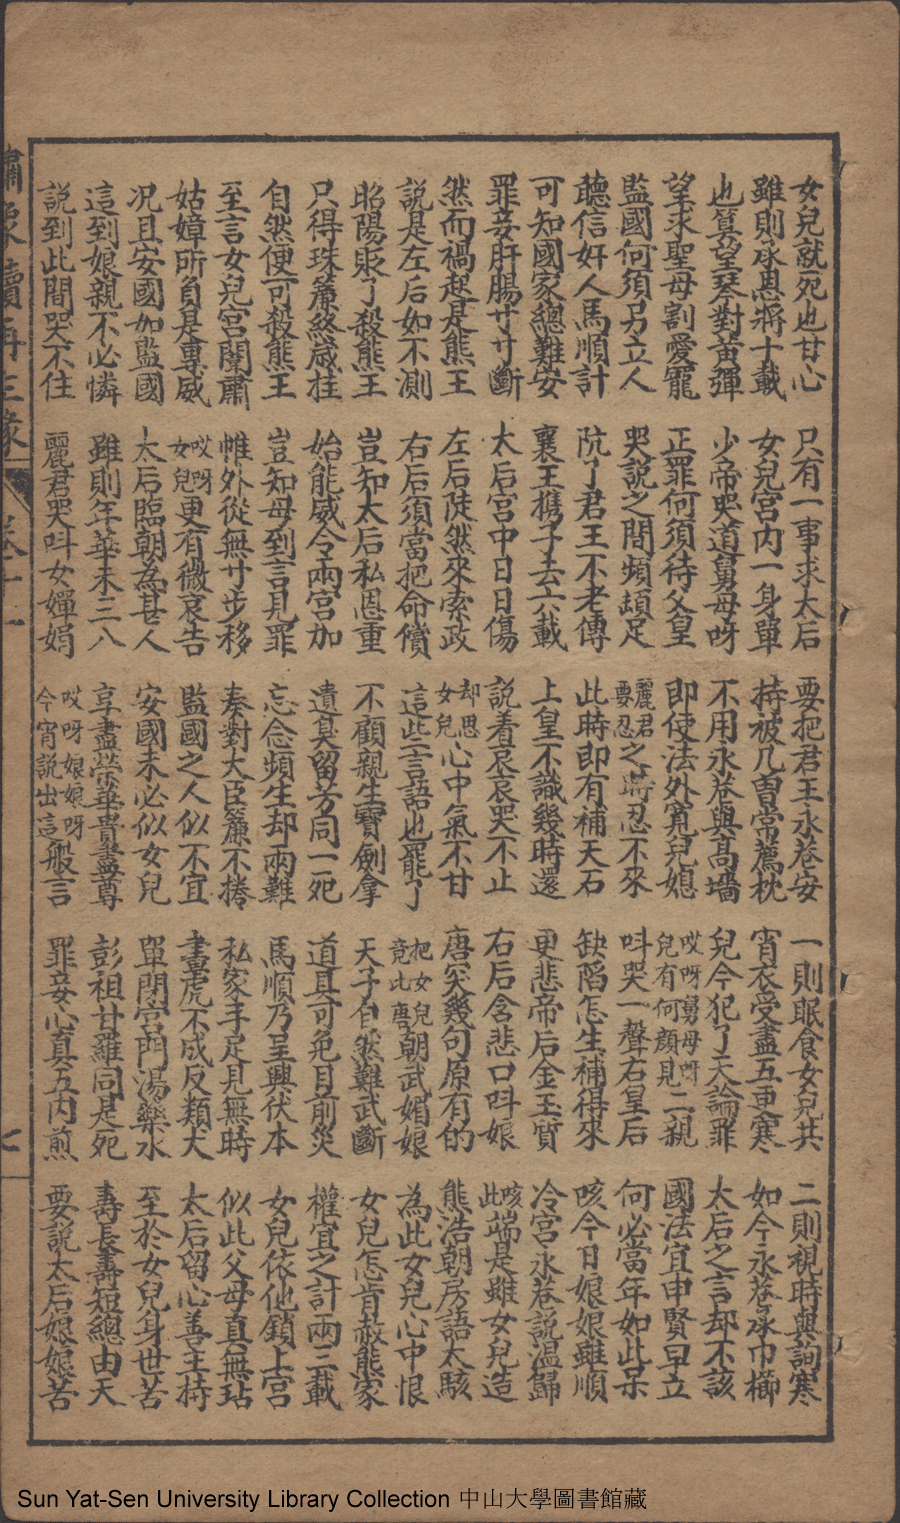 女兒就死也甘心 只有一事求太后 要把君王永巷安 一則眠食女兒共 二則視時與詢寒
雖則承恩將十載 女兒宮内一身單 持被几曽常薦枕 宵衣受盡五更寒 如今永巷承巾櫛
也算望琴對黃彈 少帝哭道舅母呀 不用永巷與高墻 兒今犯了天論罪 太后之言却不該
望求聖母割愛寵 正罪何須待父皇 即使法外寬兒媳 哎呀舅母呀兒有何顔見二親 國法宜申賢早立
監國何須另立人 哭說之間頻頓足 麗君要忍之時忍不來 呌哭一聲右皇后 何必當年如此呆
聽信奸人馬順計 阬了君王不老傳 此時即有補天石 缺陷怎生補得來 咳今日娘娘雖順
可知國家總難安 襄王携子去六載 上皇不識幾時還 更悲帝后金玉質 冷宮永巷說溫歸
罪妾肝腸寸寸斷 太后宮中日日傷 說着哀哀哭不止 右后含悲口呌娘 咳此端是雖女兒造
然而禍起是熊王 左后陡然來索政 却思女兒心中氣不甘 唐突幾句原有的 熊浩朝房語太駭
說是左后如不測 右后須當把命償 這些言語也罷了 把女兒竟比唐朝武媚娘 為此女兒心中恨
昭陽貶了殺熊王 豈知太后私恩重 不顧親生寶劍拿 天子自然難武斷 女兒怎肯赦熊家
只得珠簾終歲挂 始能威令兩宮加 遺臭留芳同一死 道具可免目前災 權宜之計兩三載
自然便可殺熊王 豈知母到言見罪 忘念頻生却兩難 馬順乃呈興伏本 女兒依他鎖上宮
至言女兒宮闈肅 帷外從無寸步移 奏對大臣簾不捲 私家手足見無時 似此父母真無玷
姑嫜所負是專威 哎呀女兒更有微哀告 監國之人似不宜 畫虎不成反類犬 太后留心善主持
况且安國如監國 太后臨朝為甚人 安國未必似女兒 單閉宮門湯藥水 至於女兒身世苦
這到娘親不必憐 雖則年華未三八 享盡榮華貴盡尊 彭祖甘羅同是死 壽長壽短總由天
說到此間哭不住 麗君哭呌女嬋娟 哎呀娘娘呀今宵說出這般言 罪妾心真五内煎 要說太后娘娘苦
繡像續再生緣 卷十一 七
Sun Yat-Sen University Library Collection 中山大學圖書館藏